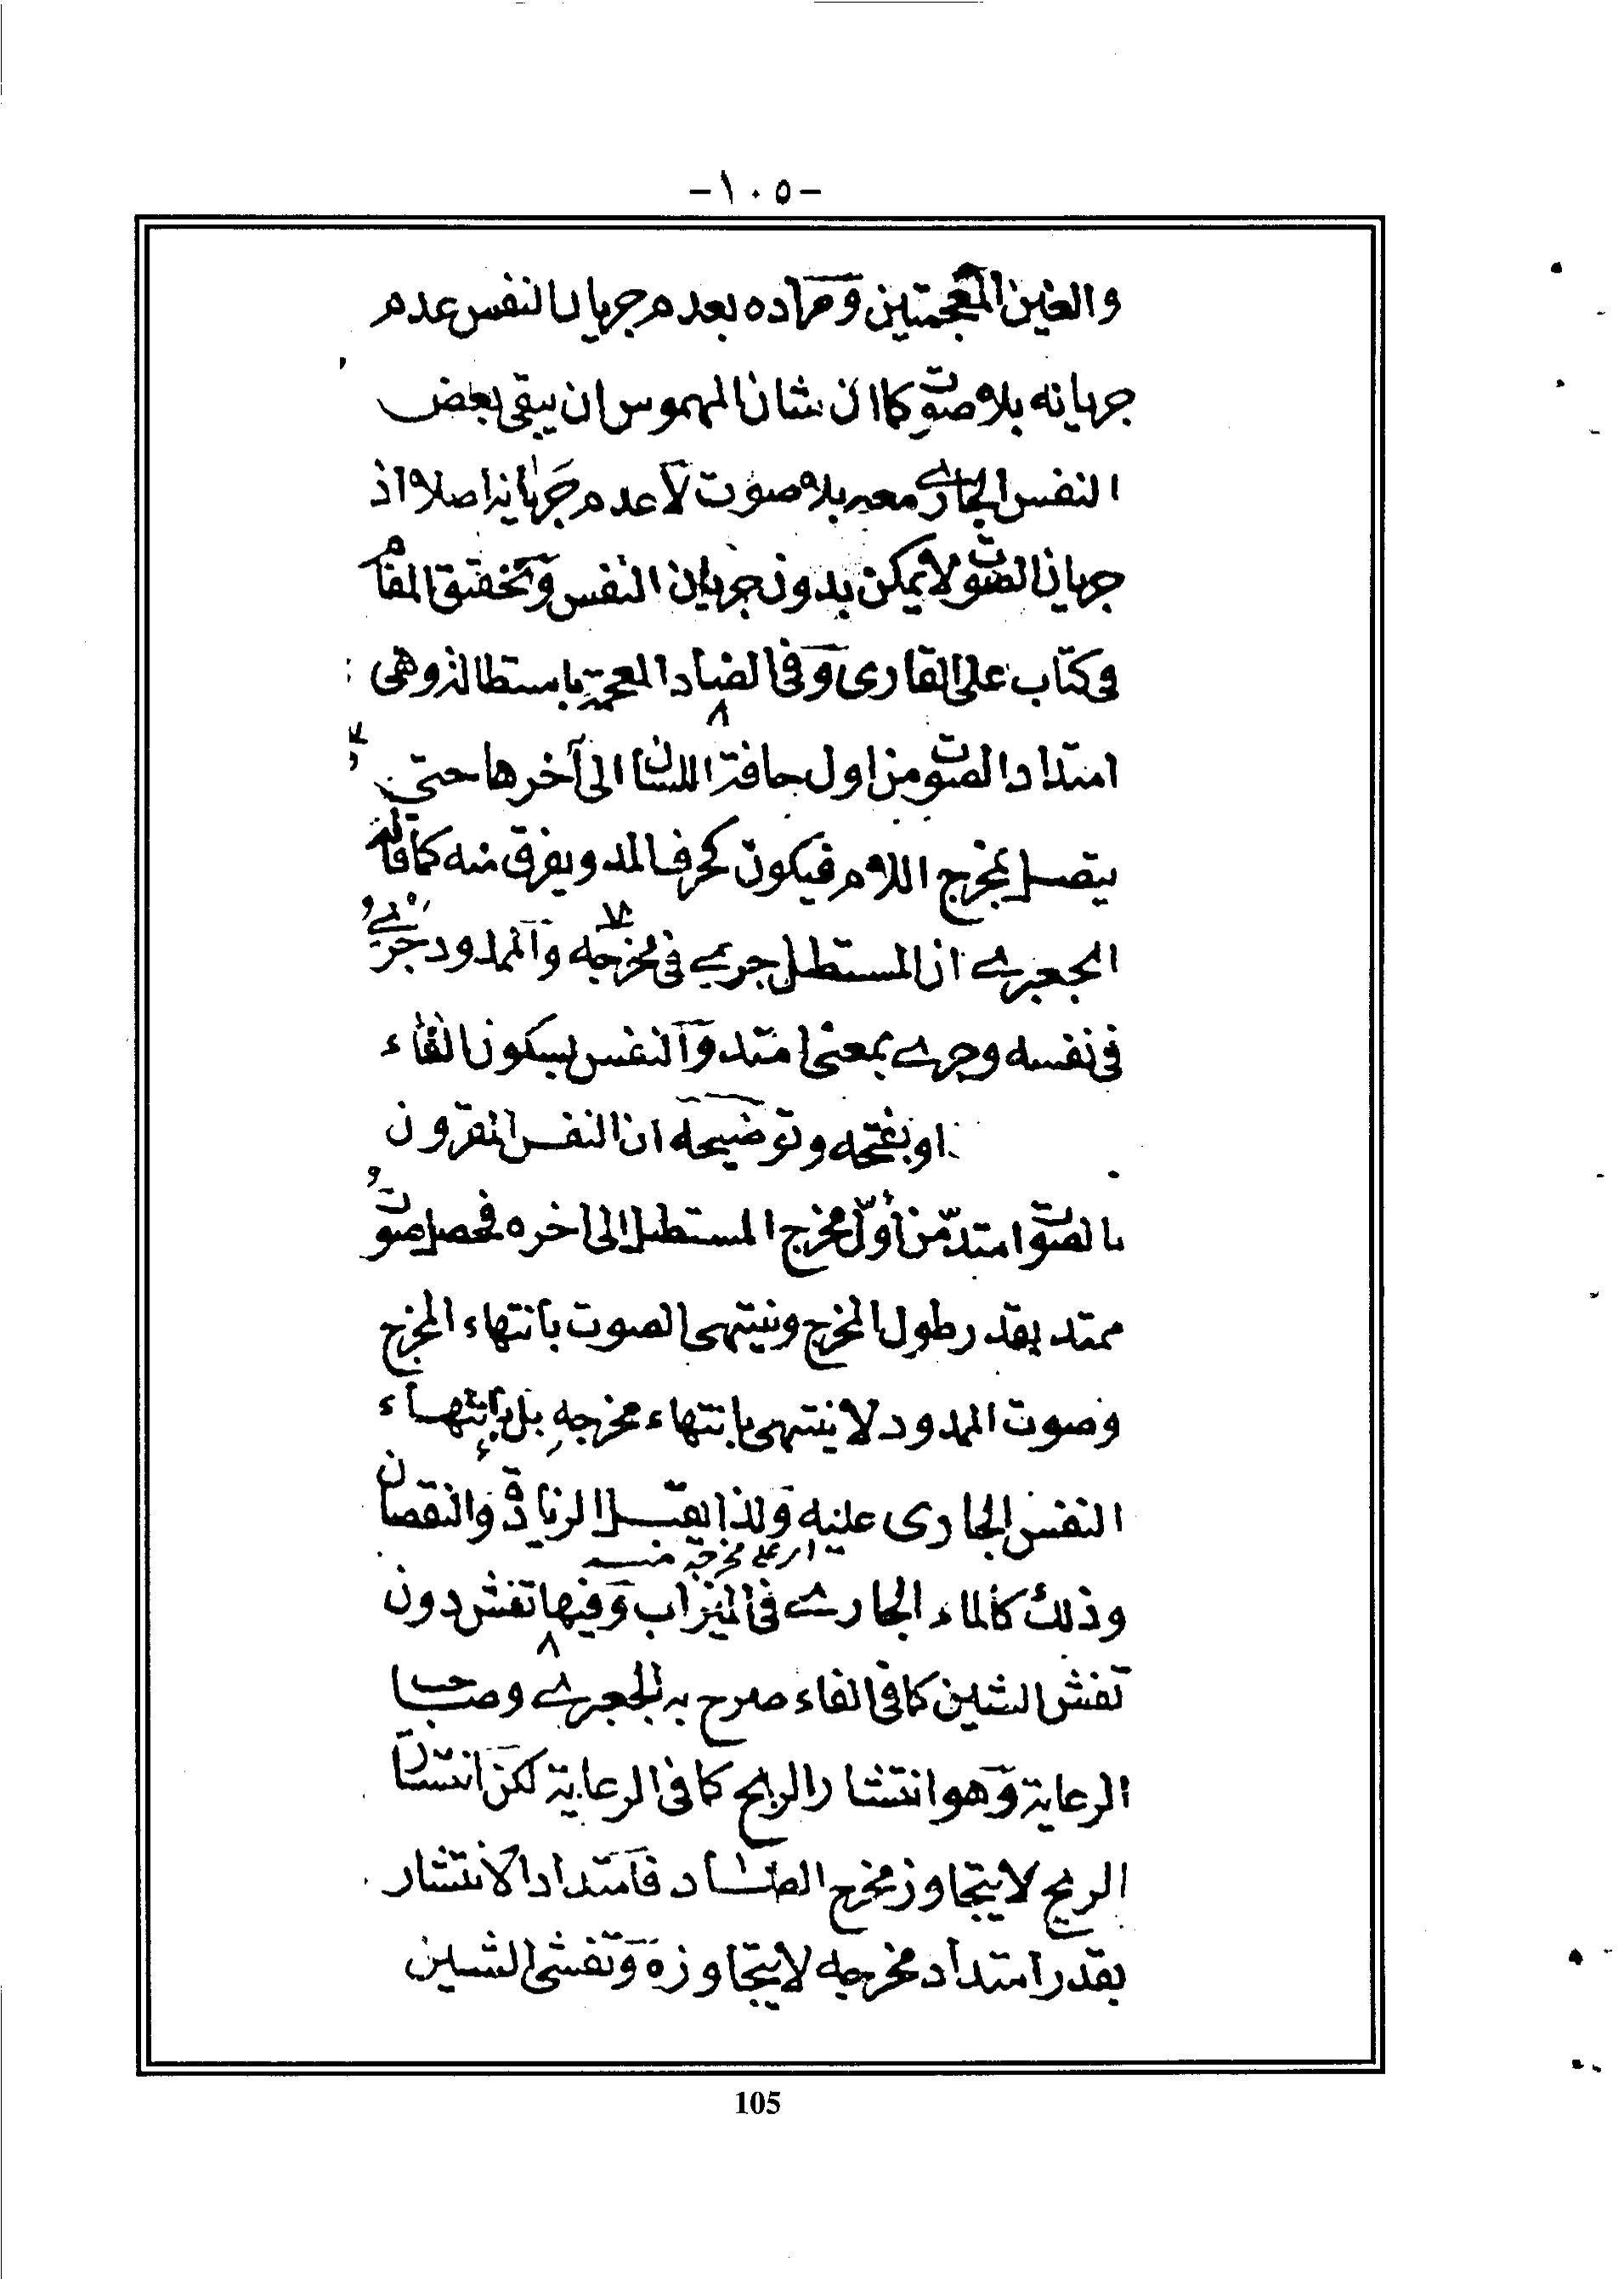 -١٠٥-
والغين المعجمتين ومراده بعدم جريان النفس عدم
جريانه بلا صوت كما ان شان المهموس ان يبقى بعض
النفس الجارى معه بلا صوت لا عدم جريانه اصلا اذ
جريان الصوت لا يمكن بدون جريان النفس وتحقيق المقام
فى كتاب على القارى وفى الضاد المعجمة باستطالة وهى
امتداد الصوت من اول حافة اللسان الى آخرها حتى
يتصل بمخرج اللام فيكون كحرف المد ويفرق منه كما قاله
الجعبرى ان المستطيل جرى فى مخرجه والممدود جرى
فى نفسه وجرى بمعنى امتد والنفس بسكون الفاء
او بفتحه وتوضيحه ان النفس المقرون
بالصوت امتد من أول مخرج المستطيل الى اخره فحصل صوت
ممتد بقدر طول المخرج وينتهى الصوت بانتهاء المخرج
وصوت الممدود لا ينتهى بانتهاء مخرجه بل بانتهاء
النفس الجارى عليه ولذا يقبل الزيادة والنقصان
اى على مخرجه منه
وذلك كالماء الجارى فى الميزاب وفيها تفش دون
تفش الشين كما فى الفاء صرح به الجعبرى وصاحب
الرعاية وهو انتشار الريح كما فى الرعاية لكن انتشار
الريح لا يتجاوز مخرج الضاد فامتداد الانتشار
بقدر امتداد مخرجه لا يتجاوزه وتفشى الشين
105